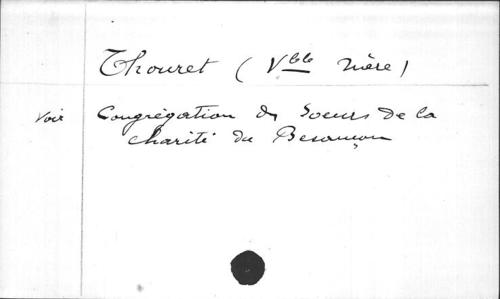 Thouret (Vble Mère)
Voir Congrégation des Soeurs de la
charité de Besançon